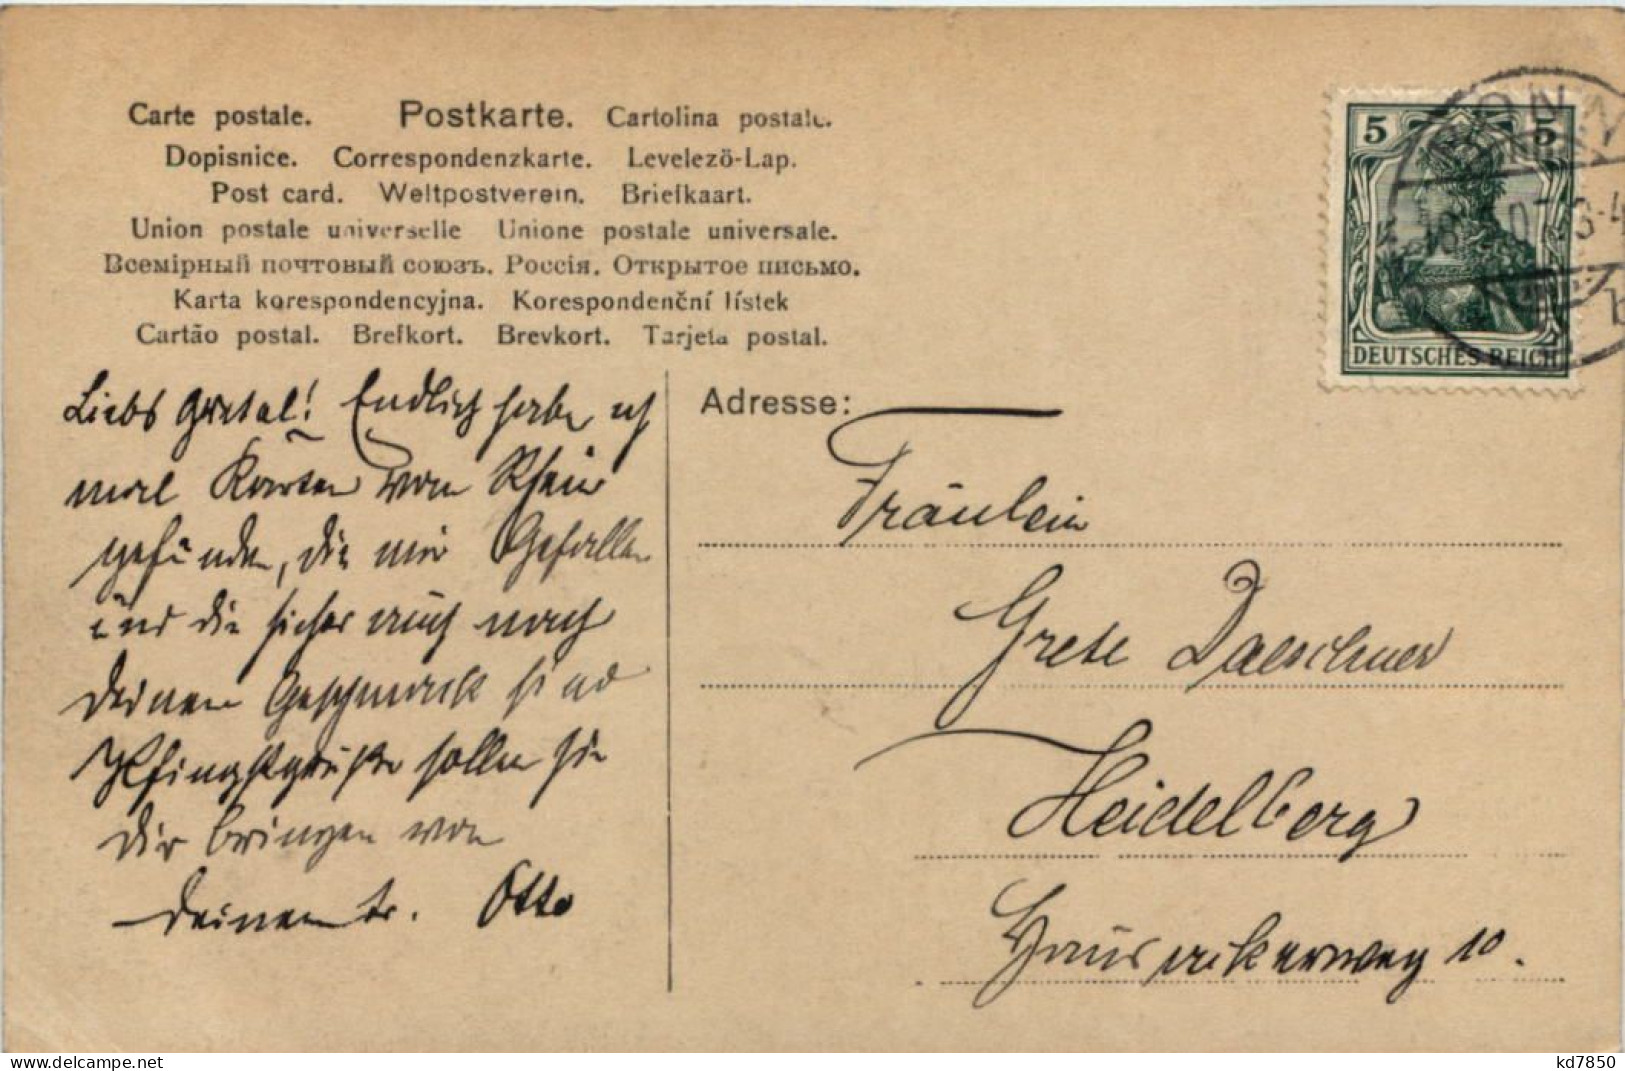 Carte postale. Postkarte. Cartolina postale.
Dopisnice. Correspondenzkarte. Levelezö-Lap.
Post card. Weltpostverein. Briefkaart.
Union postale universelle Unione postale universale.
Всемірный почтовый союзъ. Россія. Открытое письмо.
Karta korespondencyjna. Korespondenční lístek
Cartão postal. Brefkort. Brevkort. Tarjeta postal.
5 5
DEUTSCHES REICH
Liebs Gretal! Endlich habe ich
mal Karten vom Rhein
gefunden, die mir Gefallen
und die sicher auch nach
Deinem Geschmack sind
Pfingstgrüße sollen sie
Dir bringen von
Deinem tr. Otto
Adresse:
Fräulein
Grete
Heidelberg
Hausackerweg 10.
https://www.delcampe.net
kd7850